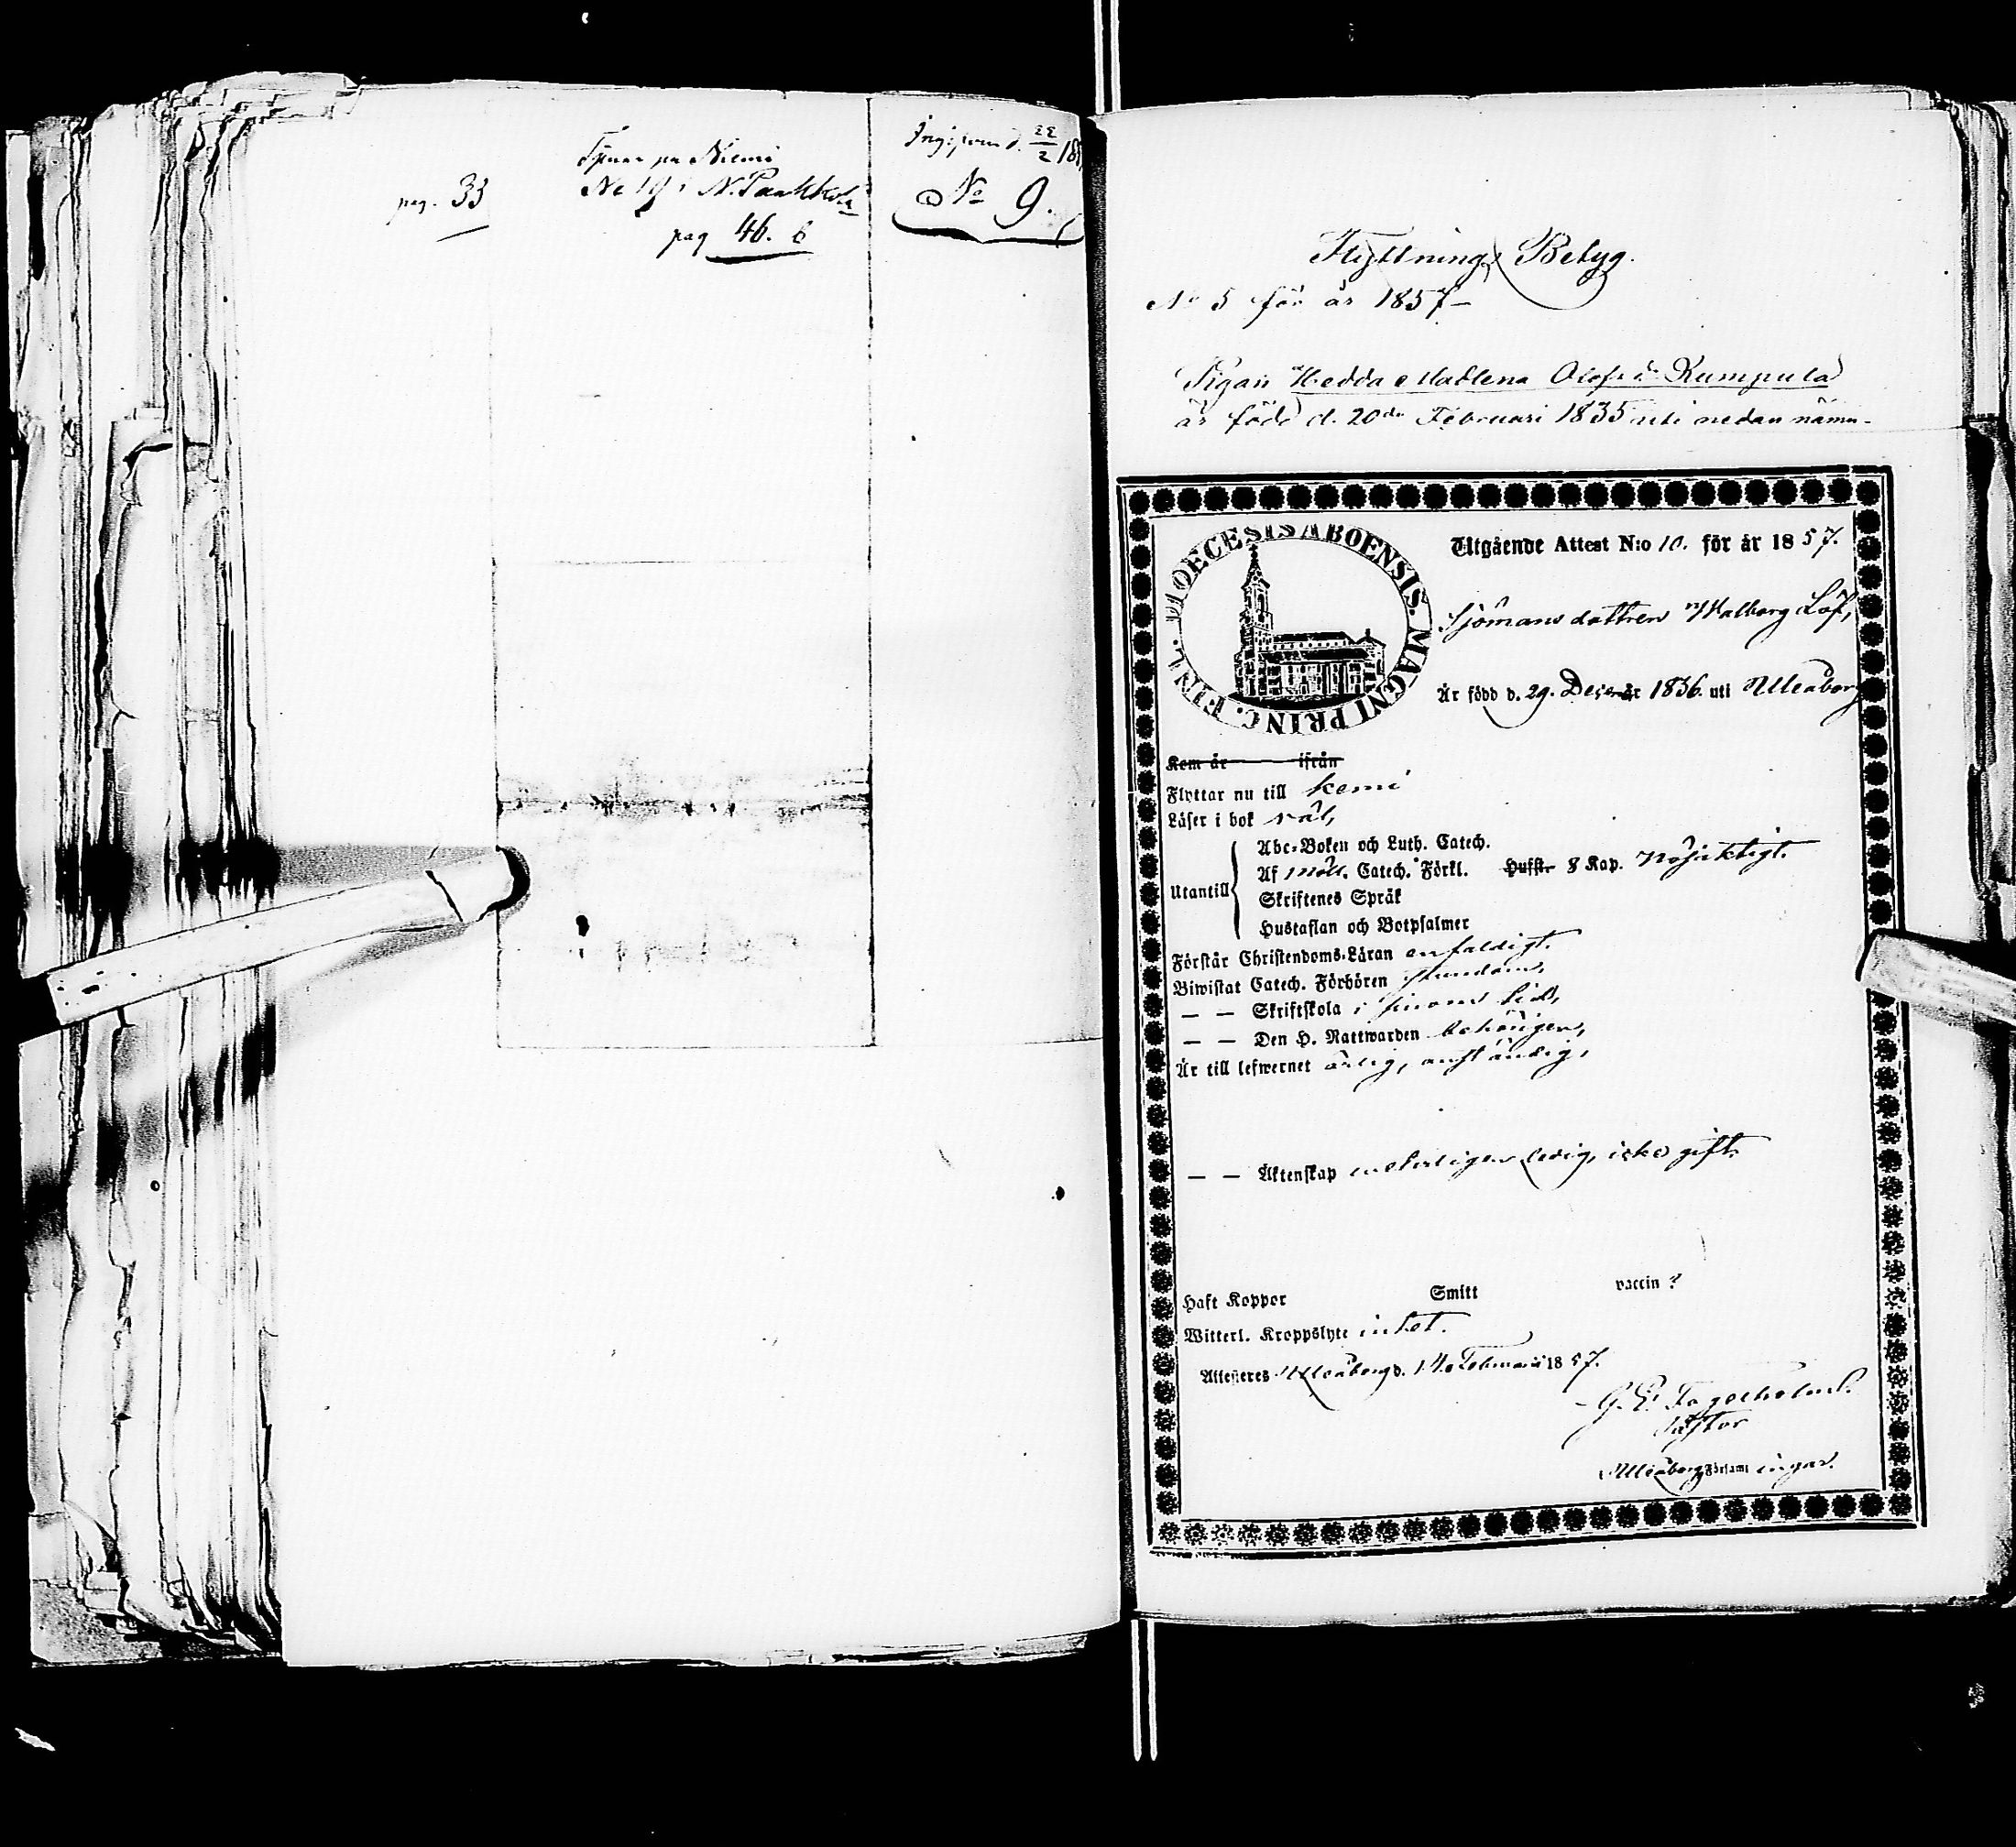 pag. 33
Tjenar på Niemi
No 19 i N. Paakkola
pag 46. b
No 9.
Flyttnings Betyg.
No 5 för år 1857
Pigan Hedda Madlena Olofsdr Rumpula
är född d. 20de Februari 1835 uti nedan nämn-
DIOECESIS ABOENSIS. MAGNI PRINC. FINL.
Utgående Attest N:o 10. för år 1857.
Sjömansdottren Walborg Löf,
Är född d. 29. Decemb 1836. uti Uleåborg
Kom år ifrån
Flyttar nu till Kemi
Läser i bok väl,
Abc-Boken och Luth. Catech.
Utantill
Af Möll. Catech. Förkl. Hufst. 8 Kap. nöjaktigt.
Skriftenes Språk
Hustaflan och Botpsalmer
Förstår Christendoms-Läran enfaldigt.
Biwistat Catech. Förhören stundom,
— — Skriftskola i sinom tid,
— — Den H. Nattwarden behörigen,
Är till lefwernet ärlig, anständig,
— — Äktenskap ledig, icke gift.
Haft Koppor Smitt vaccin ?
Witterl. Kroppslyte intet.
Attesteras Uleåborg d. 14 Februarii 1857.
G. E.
Pastor
Uleåborg Församlingar.